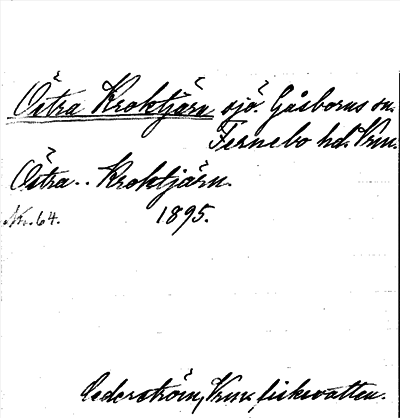 Östra Kroktjärn sjö. Gåsborns sn.
Fernebo hd. Vrm.
Östra.. Kroktjärn.
Nr. 64. 1895.
Cederström, Vrm. fiskevatten.